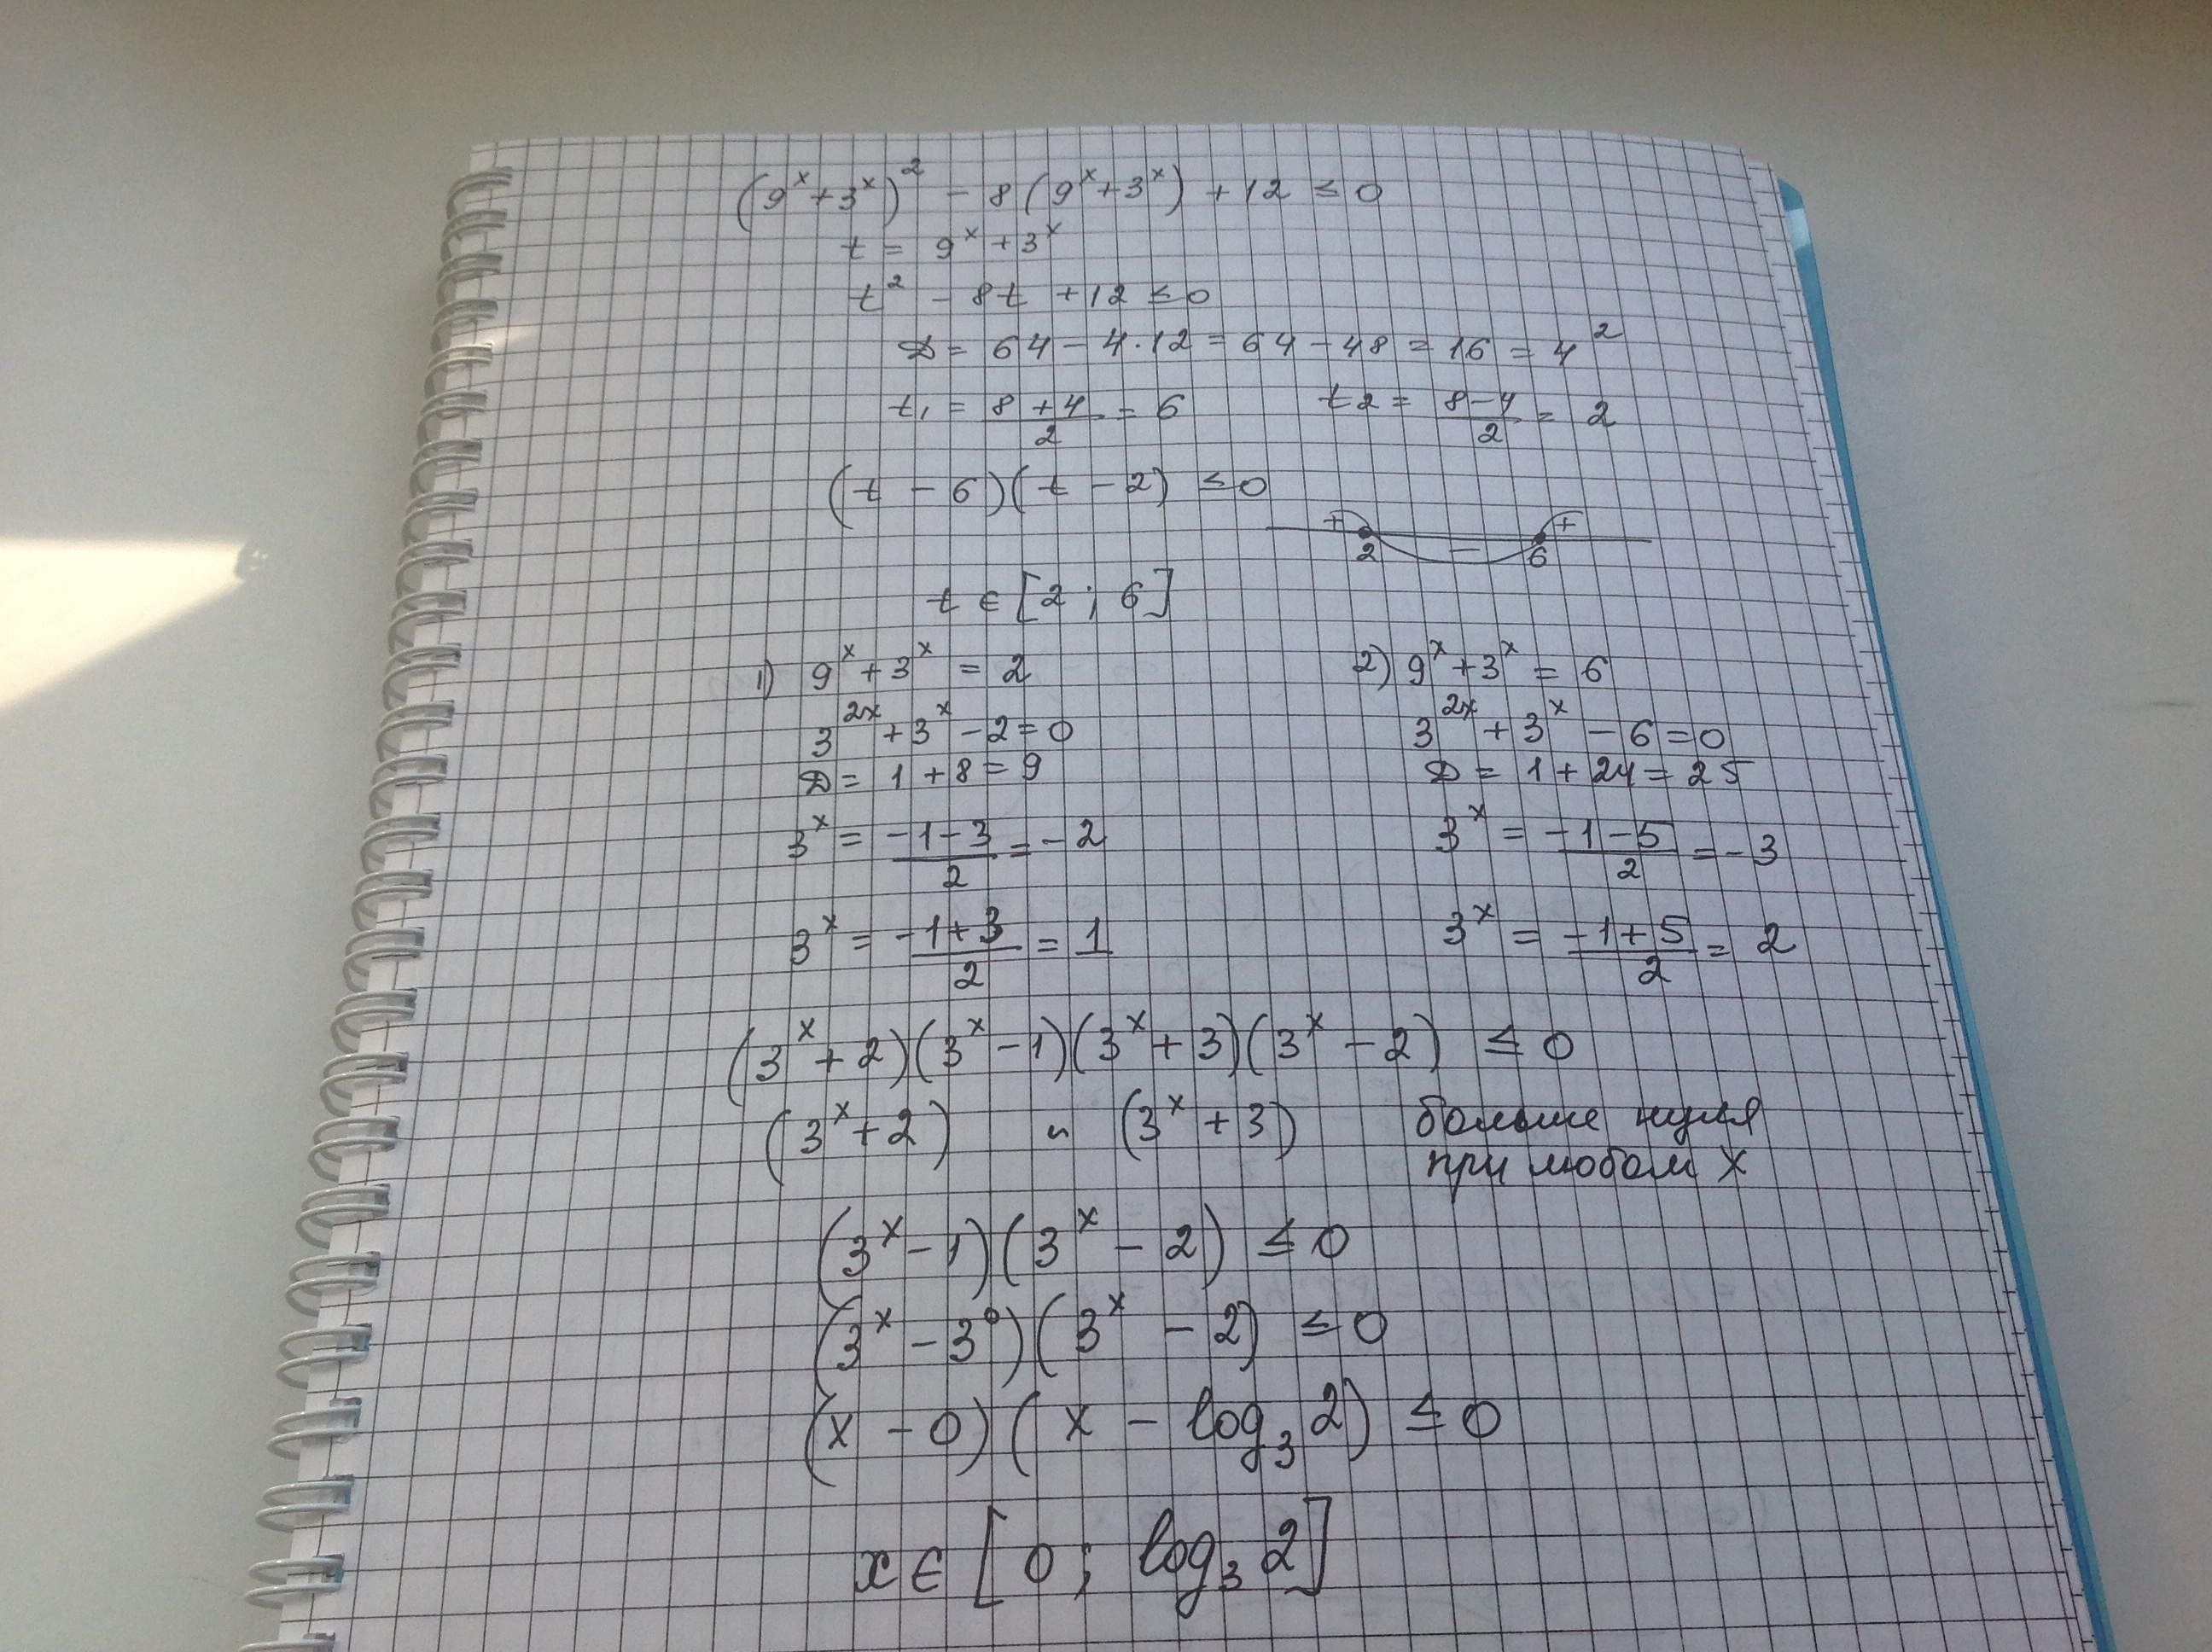 (9ˣ + 3ˣ)² - 8(9ˣ + 3ˣ) + 12 ≤ 0
t = 9ˣ + 3ˣ
t² - 8t + 12 ≤ 0
D = 64 - 4·12 = 64 - 48 = 16 = 4²
t₁ = (8 + 4)/2 = 6 t2 = (8 - 4)/2 = 2
(t - 6)(t - 2) ≤ 0
+ 2 - 6 +
t ∈ [2 ; 6]
1) 9ˣ + 3ˣ = 2 2) 9ˣ + 3ˣ = 6
3²ˣ + 3ˣ - 2 = 0 3²ˣ + 3ˣ - 6 = 0
D = 1 + 8 = 9 D = 1 + 24 = 25
3ˣ = (-1 - 3)/2 = -2 3ˣ = (-1 - 5)/2 = -3
3ˣ = (-1 + 3)/2 = 1 3ˣ = (-1 + 5)/2 = 2
(3ˣ + 2)(3ˣ - 1)(3ˣ + 3)(3ˣ - 2) ≤ 0
(3ˣ + 2) и (3ˣ + 3) больше нуля
при любом x
(3ˣ - 1)(3ˣ - 2) ≤ 0
(3ˣ - 3⁰)(3ˣ - 2) ≤ 0
(x - 0)(x - log₃ 2) ≤ 0
x ∈ [0 ; log₃ 2]